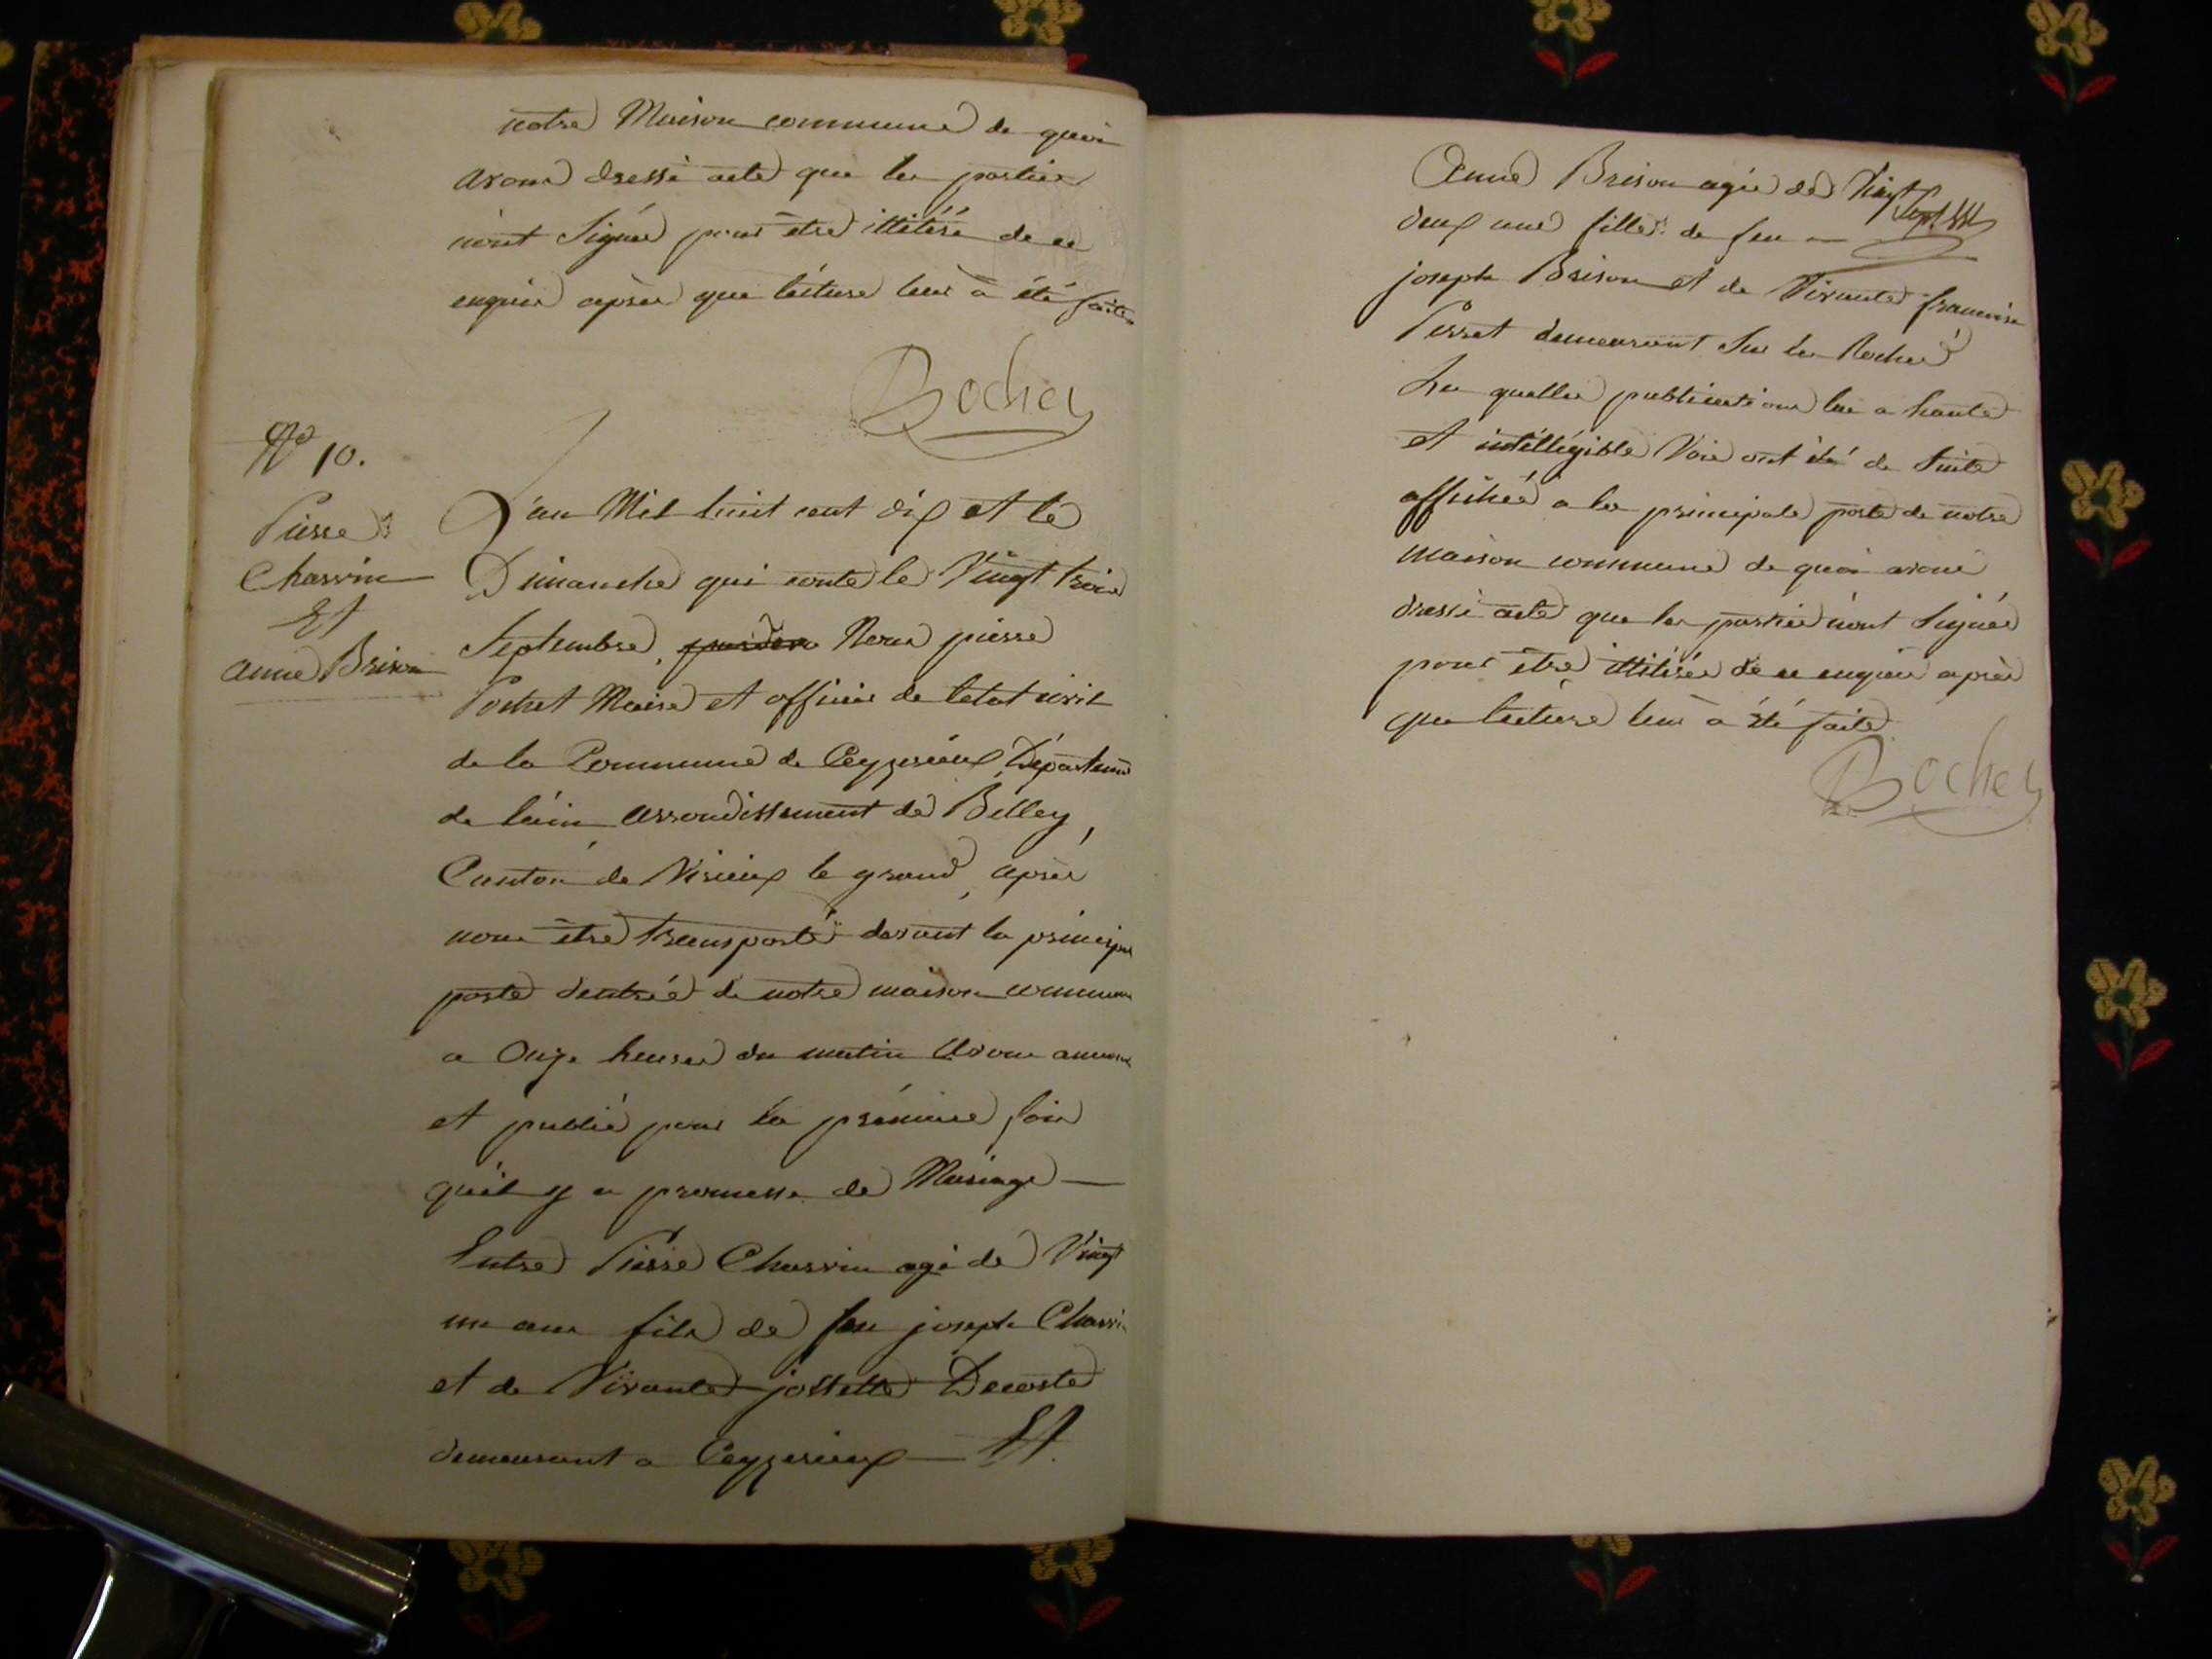 notre Maison commune de quoi
avons dressé acte que les parties
n'ont Signés pour être illitéré de ce
enquis après que lécture leur à été faite
Bochet
No 10.
Pierre
Charvin
Et
anne Brison
L'an Mil huit cent dix et le
Dimanche qui conte le Vingt trois
Septembre, Nous pierre
Pochet Maire et officier de letat civil
de la Commune de Ceyzerieux, Départem
de l'ain arrondissement de Belley,
Canton de Virieux le grand, après
nous être transporté devant la principa
porte dentrée de notre maison commune
a Onze heures du matin Avons annoncé
et publié pour la prémiere fois
qu'il y a promesse de Mariage —
Entre Pierre Charvin agé de Vingt
un ans fils de feu joseph Charvin
et de Vivante josette Decoste
demeurant a Ceyzerieux — Et.
Anne Brison agée de Vingt Sept
deux ans fille de feu —
joseph Brison et de Vivante francoise
Perret demeurant Sur les Roches
Les quelles publications lue a haute
et intéllegible Voix ont été de Suite
affichée a la principale porte de notre
maison commune de quoi avons
dressé acte que les parties n'ont Signés
pour être illitérés de ce enquis après
que lecture leur à été faite
Bochet